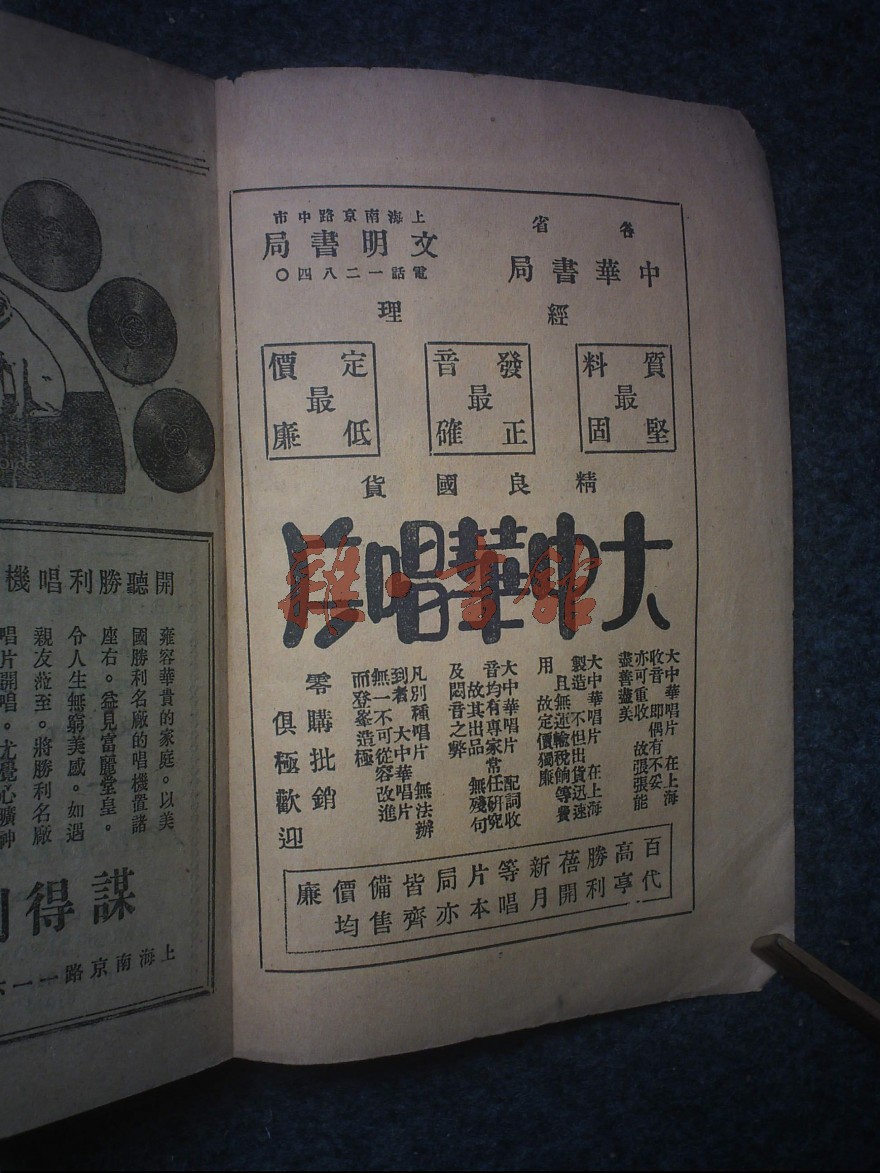 各省
中華書局
上海南京路中市
文明書局
電話一二八四〇
經理
質料最堅固
發音最正確
定價最低廉
精良國貨
大中華唱片
大中華唱片 在上海
收音 即偶有不妥
亦可重收 故張張能
盡善盡美
大中華唱片 在上海
製造 不但出貨迅速
且無運輸稅餉等費
用 故定價獨廉
大中華唱片 配詞收
音均有專家常任研究
故其出品 無殘句
及悶音之弊
凡別種唱片 無法辦
到者 大中華唱片
無一不可從容改進
而登峯造極
零購批銷
俱極歡迎
百代
高亭
勝利
蓓開
新月
等唱
片本
局亦
皆齊
備售
價均
廉
雅·書館
開聽勝利唱機
雍容華貴的家庭。以美
國勝利名廠的唱機置諸
座右。益見富麗堂皇。
令人生無窮美感。如遇
親友蒞至。將勝利名廠
唱片開唱。尤覺心曠神
謀得利
上海南京路一一六